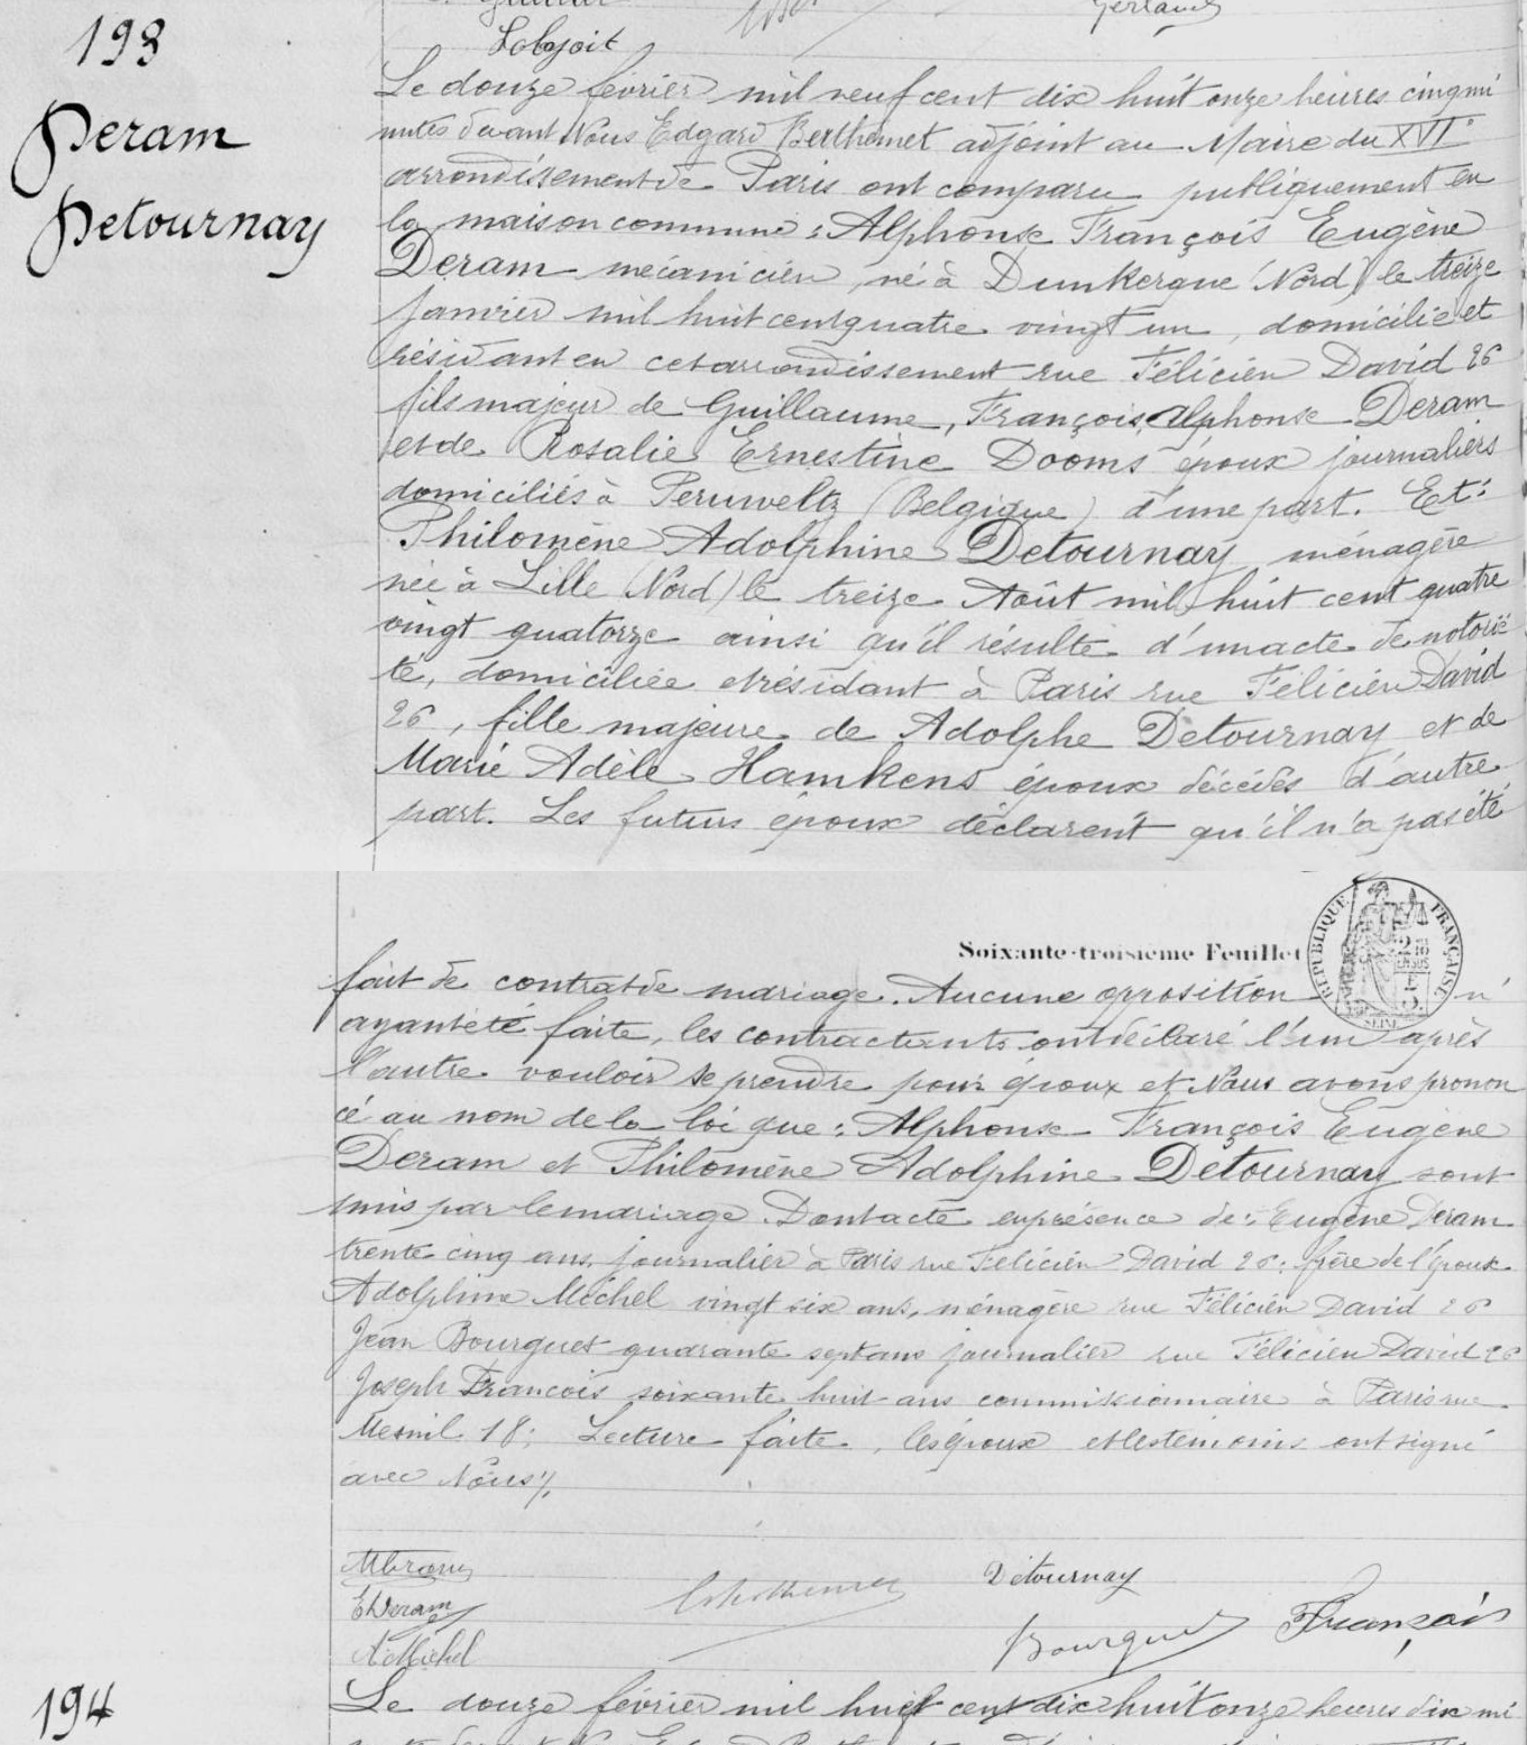 Gerland
Lobjoit
193
Deram
Detournay
Le douze février mil neuf cent dix huit onze heures cinq mi
nutes devant Nous Edgard Berthemet adjoint au Maire du XVIe
arrondissement de Paris ont comparu publiquement en
la maison commune : Alphonse François Eugène
Deram mécanicien, né à Dunkerque (Nord) le treize
janvier mil huit cent quatre vingt un, domicilié et
résidant en cet arrondissement rue Félicien David 26
fils majeur de Guillaume, François, Alphonse Deram
et de Rosalie Ernestine Dooms époux journaliers
domiciliés à Peruweltz (Belgique) d'une part. Et :
Philomène Adolphine Detournay ménagère
née à Lille (Nord) le treize Août mil huit cent quatre
vingt quatorze ainsi qu'il résulte d'un acte de notorié
té, domiciliée et résidant à Paris rue Félicien David
26, fille majeure de Adolphe Detournay et de
Marie Adèle Hamkens époux décédés d'autre
part. Les futurs époux déclarent qu'il n'a pas été
Soixante-troisième Feuillet
RÉPUBLIQUE FRANÇAISE
SEINE
fait de contrat de mariage. Aucune opposition n'
ayant été faite, les contractants ont déclaré l'un après
l'autre vouloir se prendre pour époux et Nous avons pronon
cé au nom de la loi que : Alphonse François Eugène
Deram et Philomène Adolphine Detournay sont
unis par le mariage. Dont acte en présence de : Eugène Deram
trente cinq ans, journalier à Paris rue Félicien David 26 : frère de l'époux
Adolphine Michel vingt six ans, ménagère rue Félicien David 26
Jean Bourguet quarante sept ans journalier rue Félicien David 26
Joseph François soixante huit ans commissionnaire à Paris rue
Mesnil 18 ; Lecture faite, les époux et les témoins ont signé
avec Nous ./.
Detournay
E Deram
Bourguet
François
A Michel
194
Le douze février mil huit cent dix huit onze heures dix mi